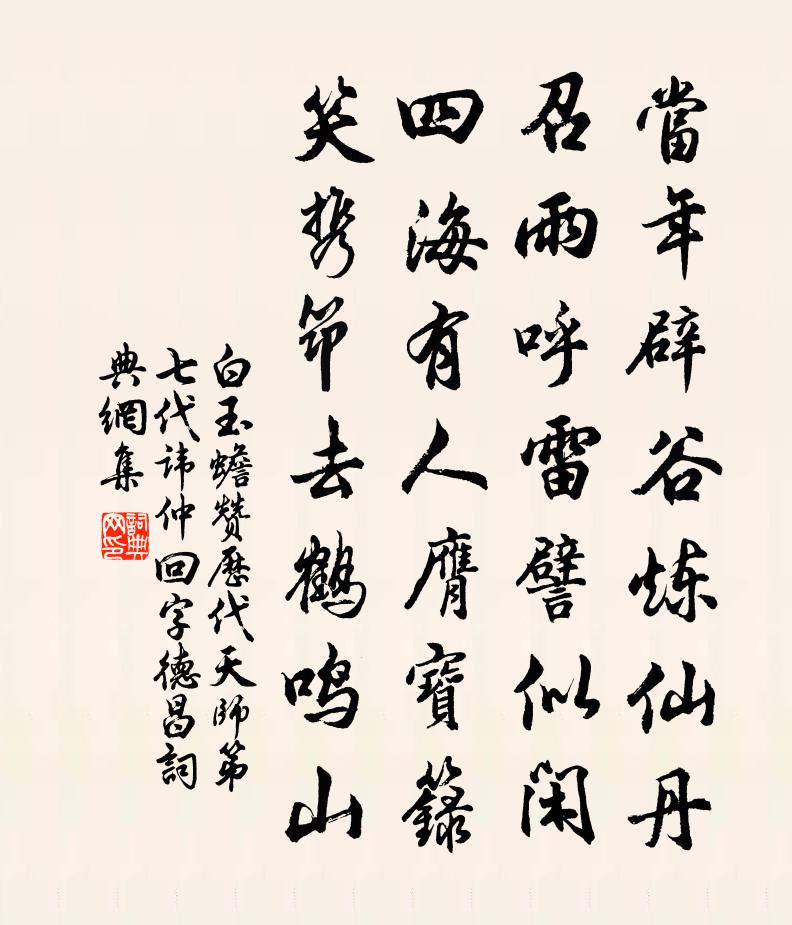 當年辟谷炼仙丹
召雨呼雷譬似闲
四海有人膺寶籙
笑携筇去鹤鸣山
白玉蟾赞歷代天師第
七代讳仲回字德昌詞
典網集
詞典网印